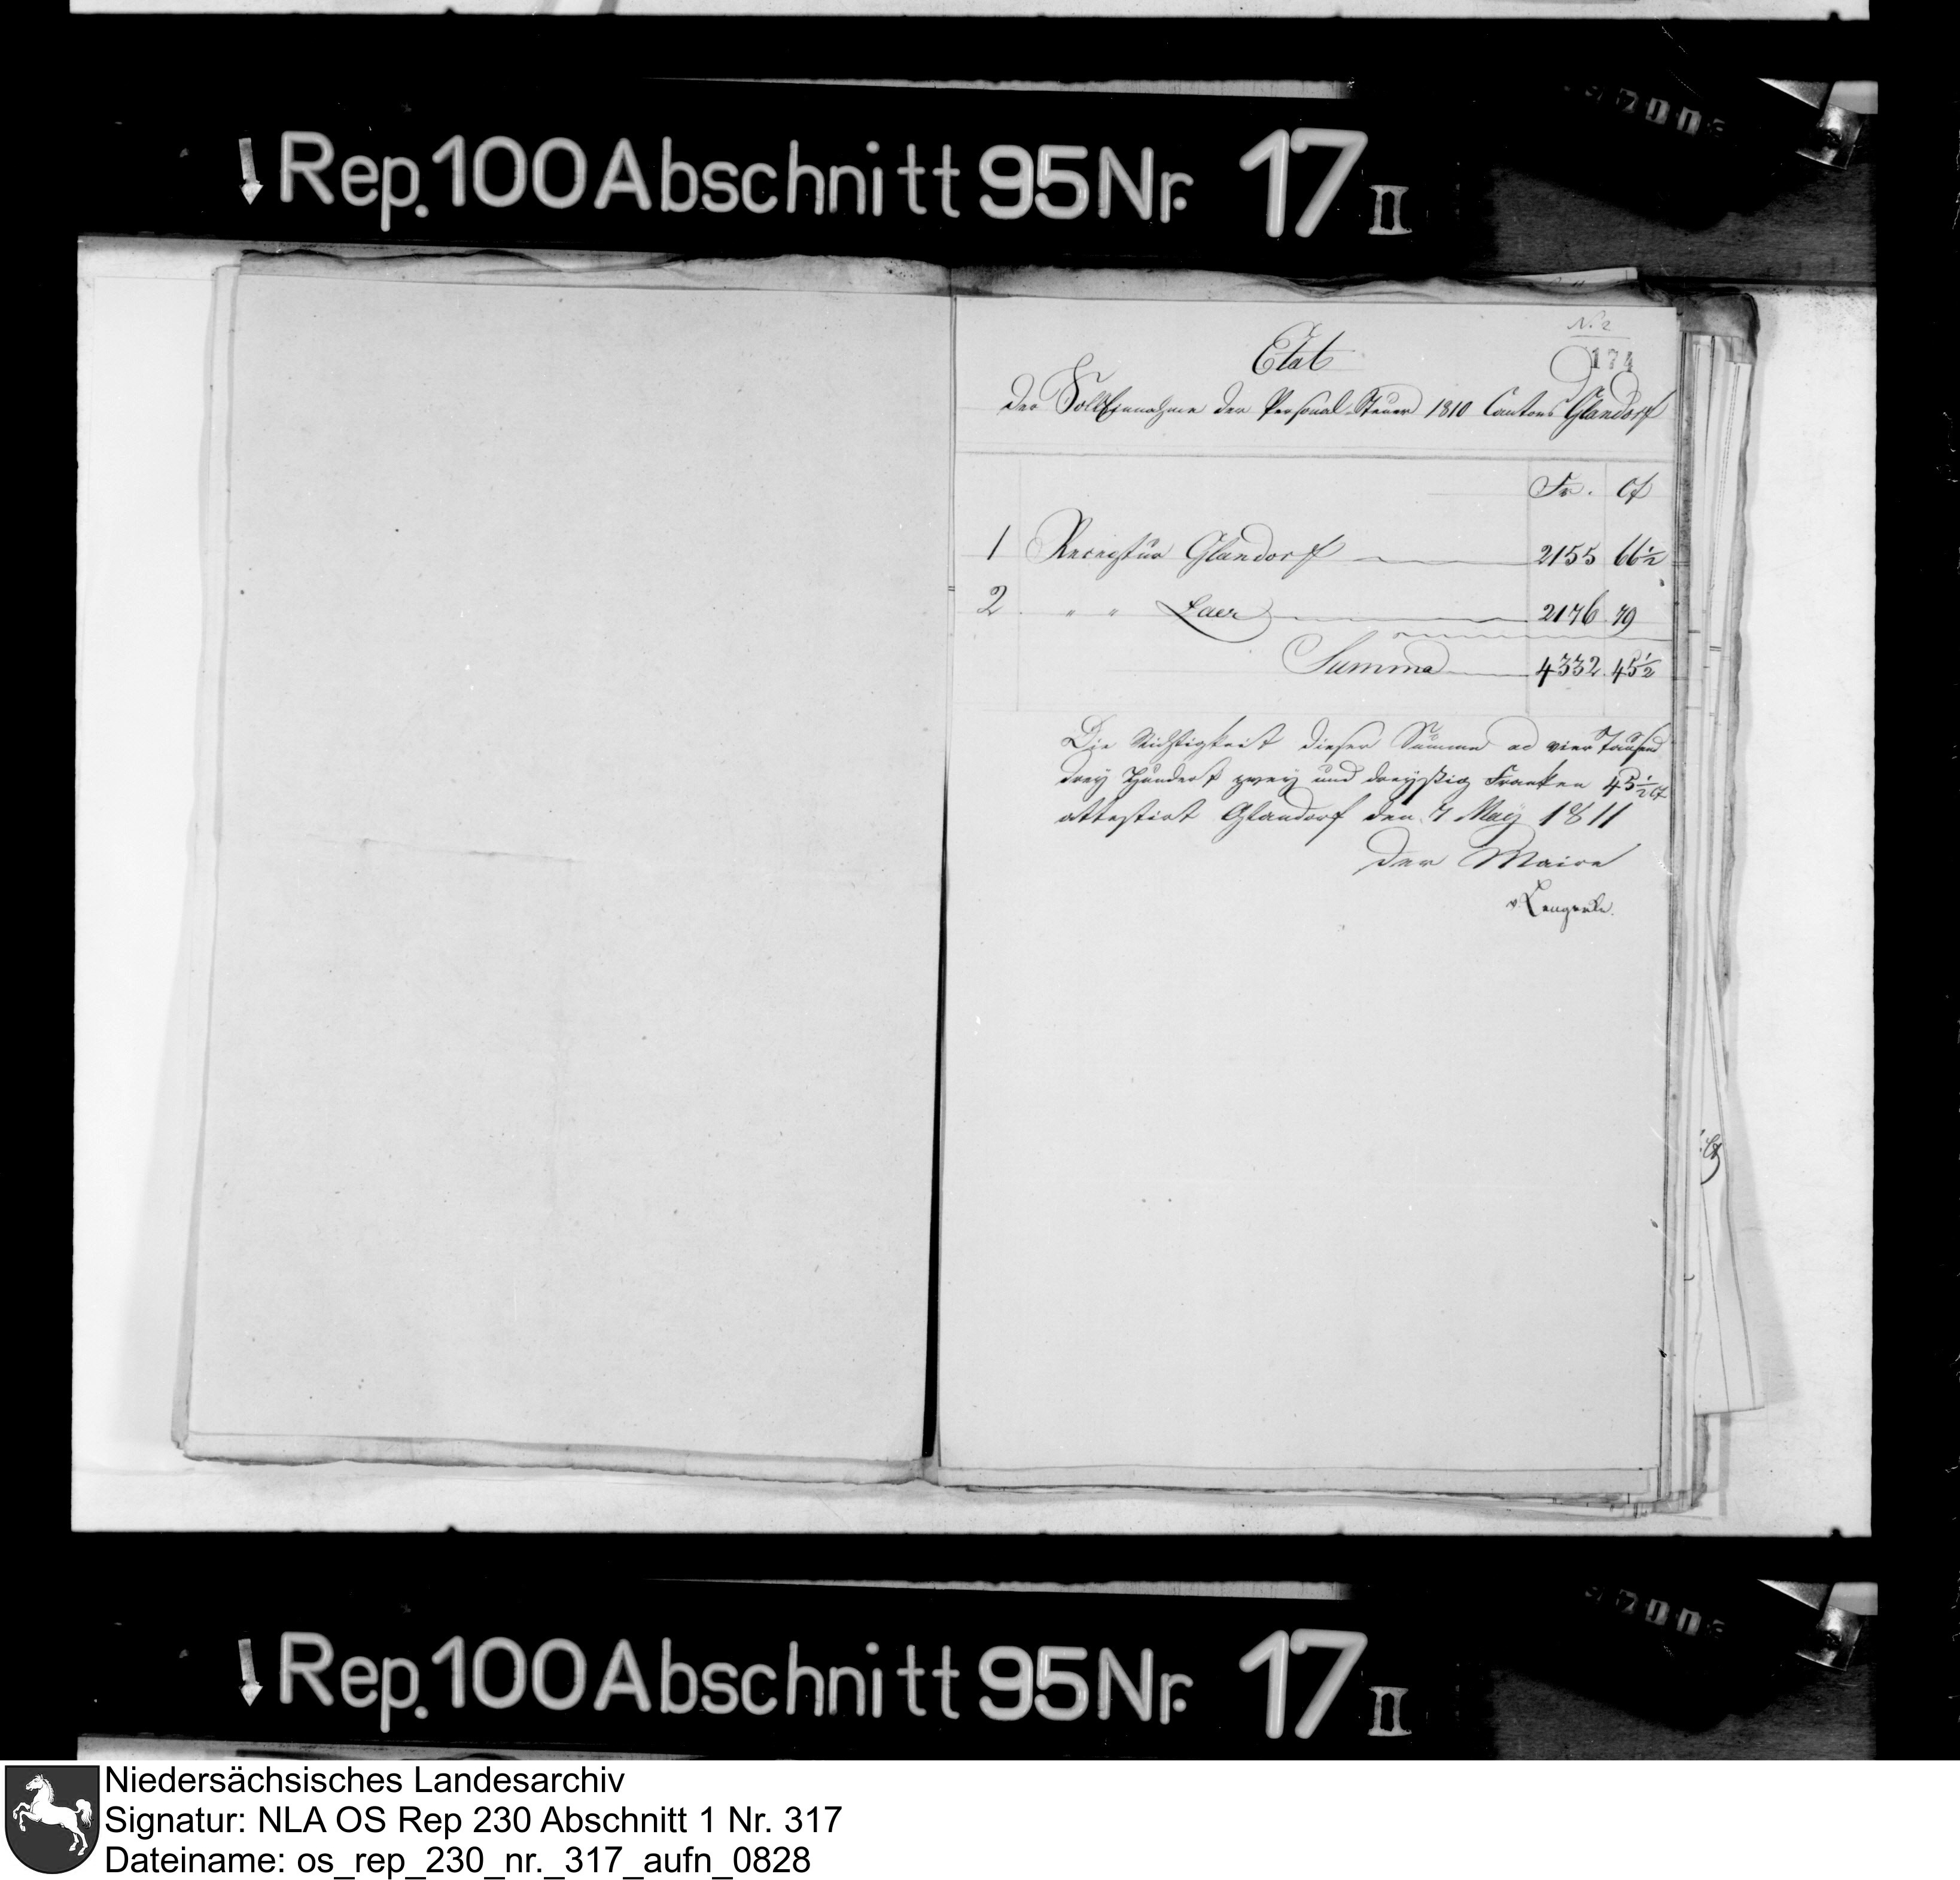 Rep. 100 Abschnitt 95 Nr. 17 II
N. 2
174
Etat
der Soll Einnahme der Personal-Steuer 1810 Cantons Glandorf
Fr. Ct
1 Receptur Glandorf 2155 66½
2 " " Laer 2176 79
Summa 4332 45½
Die Richtigkeit dieser Summe ad vier Tausend
drey Hundert zwey und dreyßig Franken 45½ Ct
attestirt Glandorf den 7 May 1811
Der Maire
v Lengerke.
Rep. 100 Abschnitt 95 Nr. 17 II
Niedersächsisches Landesarchiv
Signatur: NLA OS Rep 230 Abschnitt 1 Nr. 317
Dateiname: os_rep_230_nr._317_aufn_0828